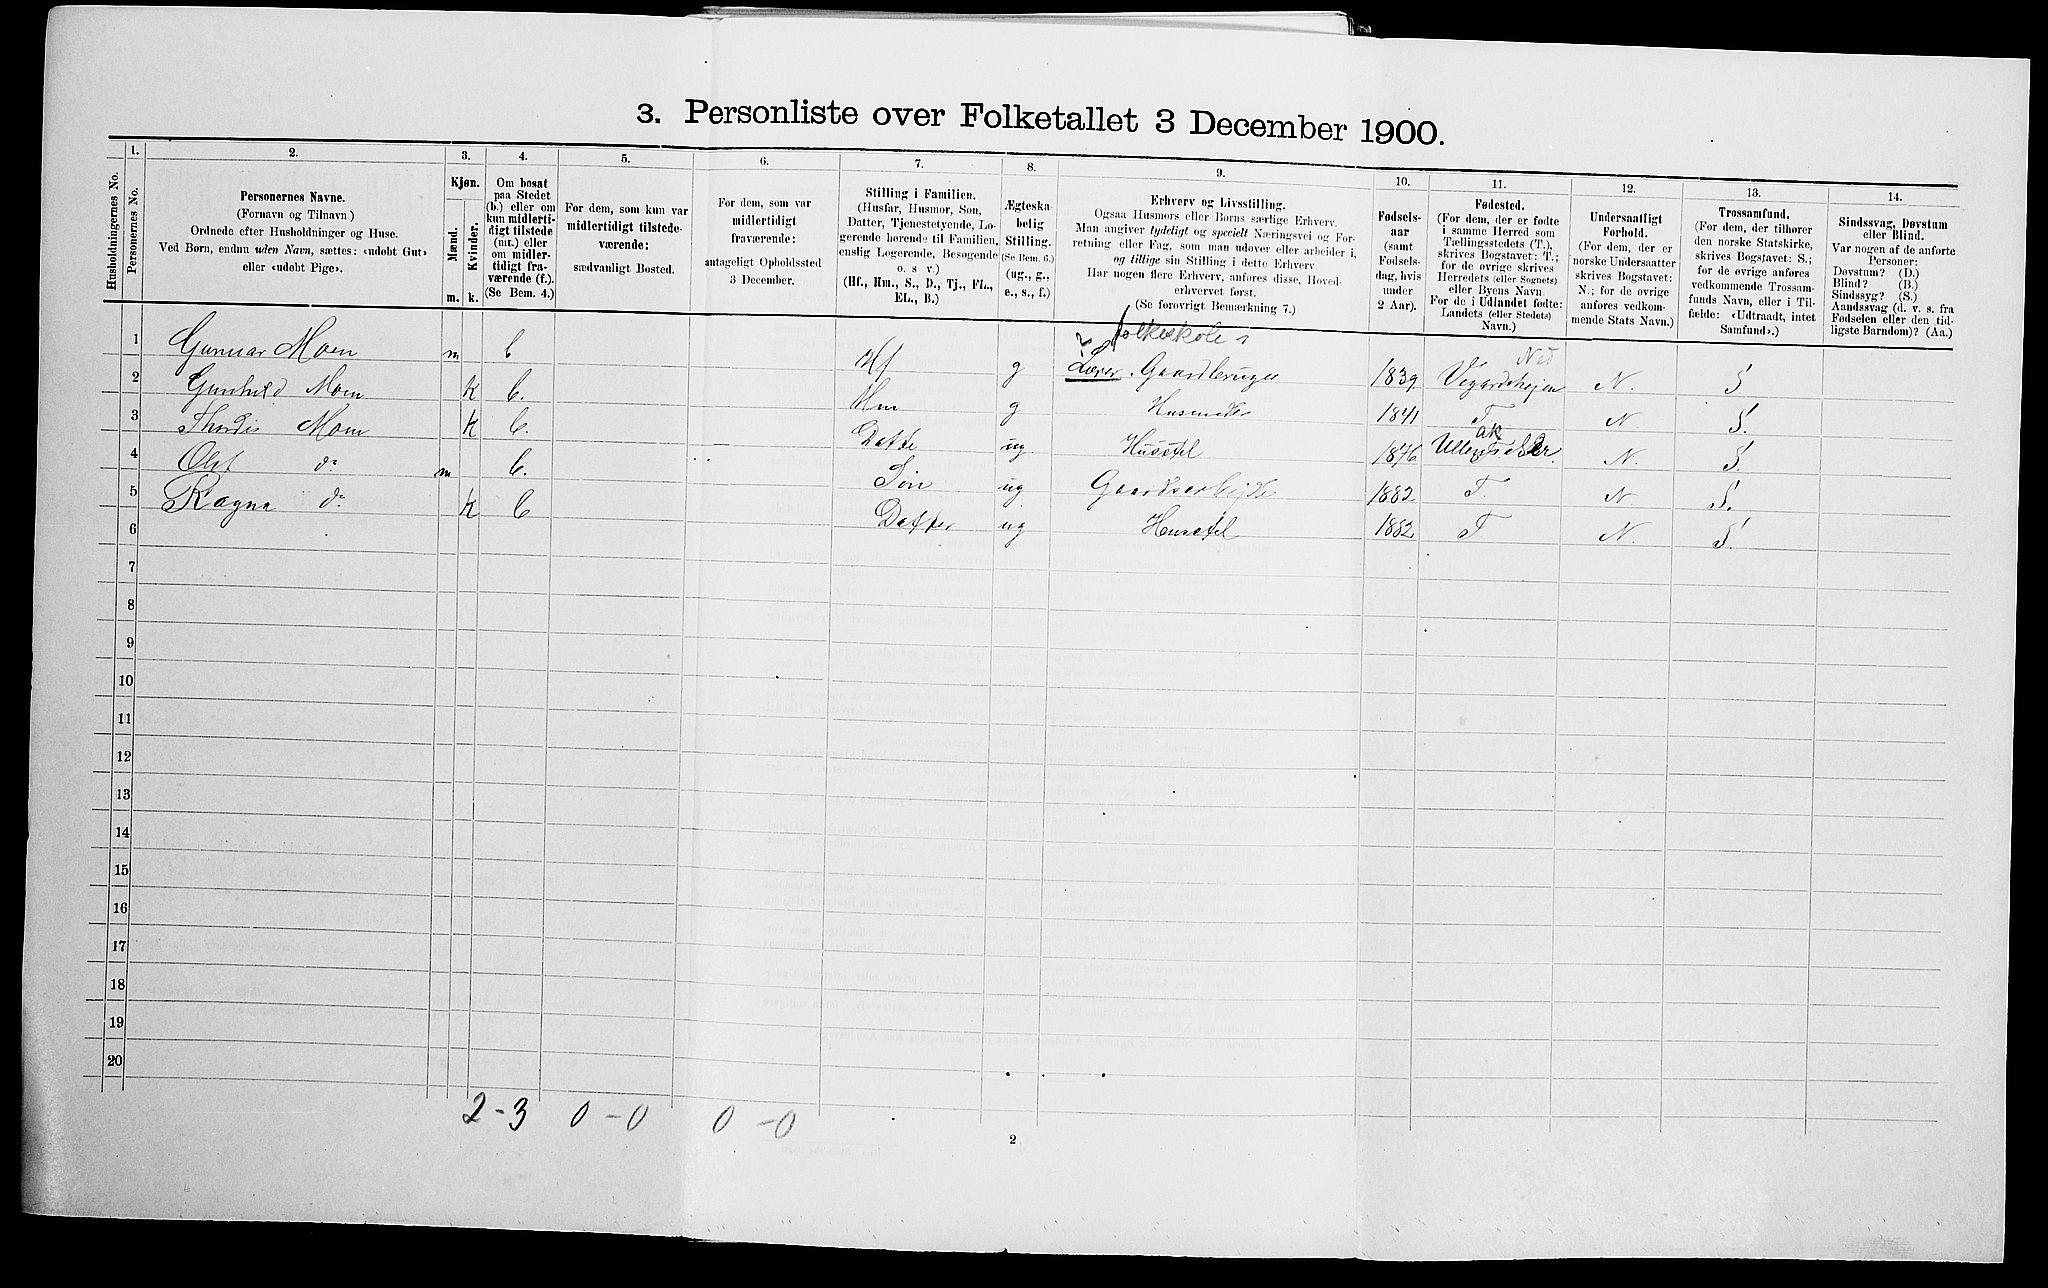 3. Personliste over Folketallet 3 December 1900.
1. 2. 3. 4. 5. 6. 7. 8. 9. 10. 11. 12. 13. 14.
Husholdningernes No.
Personernes No.
Personernes Navne.
(Fornavn og Tilnavn.)
Ordnede efter Husholdninger og Huse.
Ved Børn, endnu uden Navn, sættes: «udøbt Gut»
eller «udøbt Pige».
Kjøn.
Mænd.
Kvinder.
m. k.
Om bosat
paa Stedet
(b.) eller om
kun midlerti-
digt tilstede
(mt.) eller
om midler-
tidigt fra-
værende (f.).
(Se Bem. 4.)
For dem, som kun var
midlertidigt tilstede-
værende:
sædvanligt Bosted.
For dem, som var
midlertidigt
fraværende:
antageligt Opholdssted
3 December.
Stilling i Familien.
(Husfar, Husmor, Søn,
Datter, Tjenestetyende, Lo-
gerende hørende til Familien,
enslig Logerende, Besøgende
o. s. v.)
(Hf., Hm., S., D., Tj., FL.,
EL., B.)
Ægteska-
belig
Stilling.
(Se Bem. 6.)
(ug., g.,
e., s., f.)
Erhverv og Livsstilling.
Ogsaa Husmors eller Børns særlige Erhverv.
Man angiver tydeligt og specielt Næringsvei og For-
retning eller Fag, som man udøver eller arbeider i,
og tillige sin Stilling i dette Erhverv.
Har nogen flere Erhverv, anføres disse, Hoved-
erhvervet først.
(Se forøvrigt Bemærkning 7.)
Fødsels-
aar
(samt
Fødsels-
dag, hvis
under
2 Aar).
Fødested.
(For dem, der er fødte
i samme Herred som
Tællingsstedets (T.),
skrives Bogstavet: T.;
for de øvrige skrives
Herredets (eller Sognets)
eller Byens Navn.
For de i Udlandet fødte:
Landets (eller Stedets)
Navn.)
Undersaatligt
Forhold.
(For dem, der er
norske Undersaatter
skrives Bogstavet:
N.; for de øvrige
anføres vedkom-
mende Stats Navn.)
Trossamfund.
(For dem, der tilhører
den norske Statskirke,
skrives Bogstavet: S.;
for de øvrige anføres
vedkommende Trossam-
funds Navn, eller i Til-
fælde: «Udtraadt, intet
Samfund».)
Sindssvag, Døvstum
eller Blind.
Var nogen af de anførte
Personer:
Døvstum? (D.)
Blind? (B.)
Sindssyg? (S.)
Aandssvag (d. v. s. fra
Fødselen eller den tid-
ligste Barndom)? (Aa.)
folkeskole
1 Gunnar Moen m b Hf g Lærer. Gaardbruger 1839 Vegardshejen N. S
2 Gunhild Moen k b. Hm g Husmoder 1841 T N S.
3 Thordis Moen k b. Datte ug Husstel 1876 N. S.
4 Olaf do m b. Søn ug Gaardsarbejde 1882 T. N S.
5 Ragna do k b Datter ug Husstel 1882 T N. S.
6
7
8
9
10
11
12
13
14
15
16
17
18
19
20
2-3 0-0 0-0
2